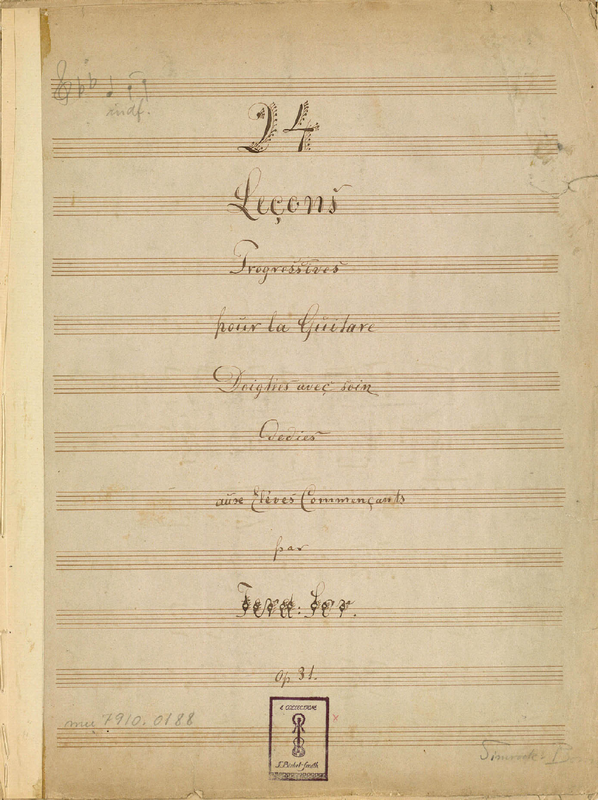 andf.
24
Leçons
Progressives
pour la Guitare
Doigtées avec soin
Dediés
aux Elèves Commençants
par
Ferd: Sor.
Op 31.
mu 7910.0188
E COLLECTIONE
Simrock